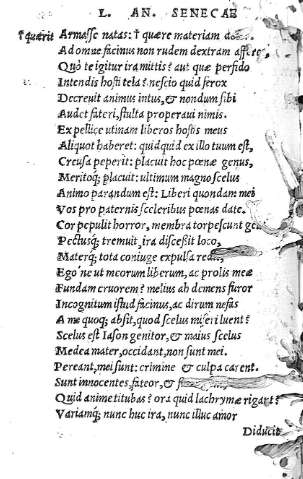 L. AN. SENECAE
† quærit Armasse natas: † quære materiam
Ad omne facinus non rudem dextram affe
Quò te igitur ira mittis? aut quæ perfido
Intendis hosti tela? nescio quid ferox
Decreuit animus intus, & nondum sibi
Audet fateri, stulta properaui nimis.
Ex pellice utinam liberos hostis meus
Aliquot haberet: quidquid ex illo tuum est,
Creusa peperit: placuit hoc pœnæ genus,
Meritoq; placuit: ultimum magno scelus
Animo parandum est: Liberi quondam mei
Vos pro paternis sceleribus pœnas date.
Cor pepulit horror, membra torpescunt ge
Pectusq; tremuit, ira discessit loco,
Materq; tota coniuge expulsa red
Ego'ne ut meorum liberum, ac prolis meæ
Fundam cruorem? melius ah demens furor
Incognitum istud facinus, ac dirum nefas
A me quoq; absit, quod scelus miseri luent?
Scelus est Iason genitor, & maius scelus
Medea mater, occidant, non sunt mei.
Pereant, mei sunt: crimine & culpa carent.
Sunt innocentes, fateor, &
Quid anime titubas? ora quid lachrymæ rigant?
Variamq; nunc huc ira, nunc illuc amor
Diducit